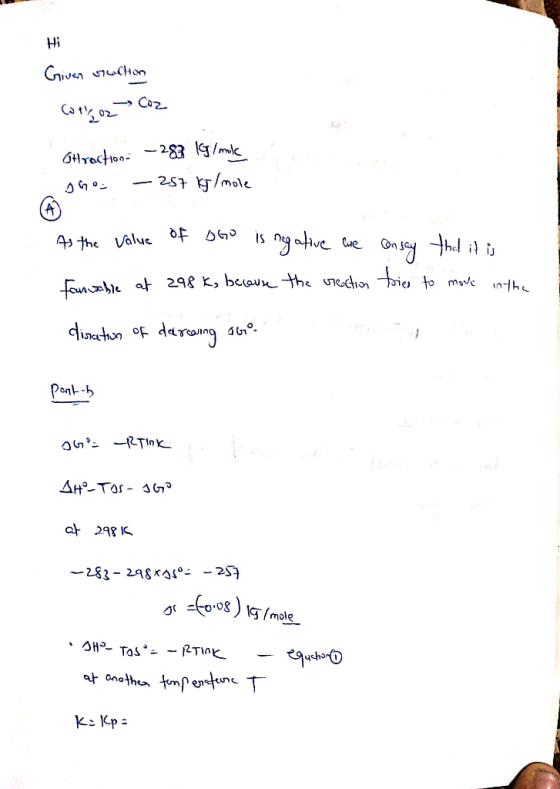 Hi
Given reaction
CO+1/2O2 → CO2
ΔHraction: -283 KJ/mole
ΔG°= -257 KJ/mole
(A)
As the value of ΔG° is negative we can say that it is
favourable at 298 K, because the reaction tries to move in the
diraction of decreasing ΔG°.
Part-b
ΔG°= -RTlnK
ΔH°-TΔS- ΔG°
at 298 K
-283-298×ΔS°= -257
ΔS =(-0.08) KJ/mole
• ΔH°- TΔS°= -RTlnK - equation①
at another temperature T
K= Kp=